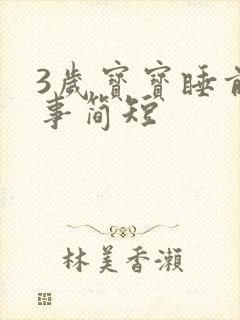 3歲寶寶睡前
事简短
林美香瀨